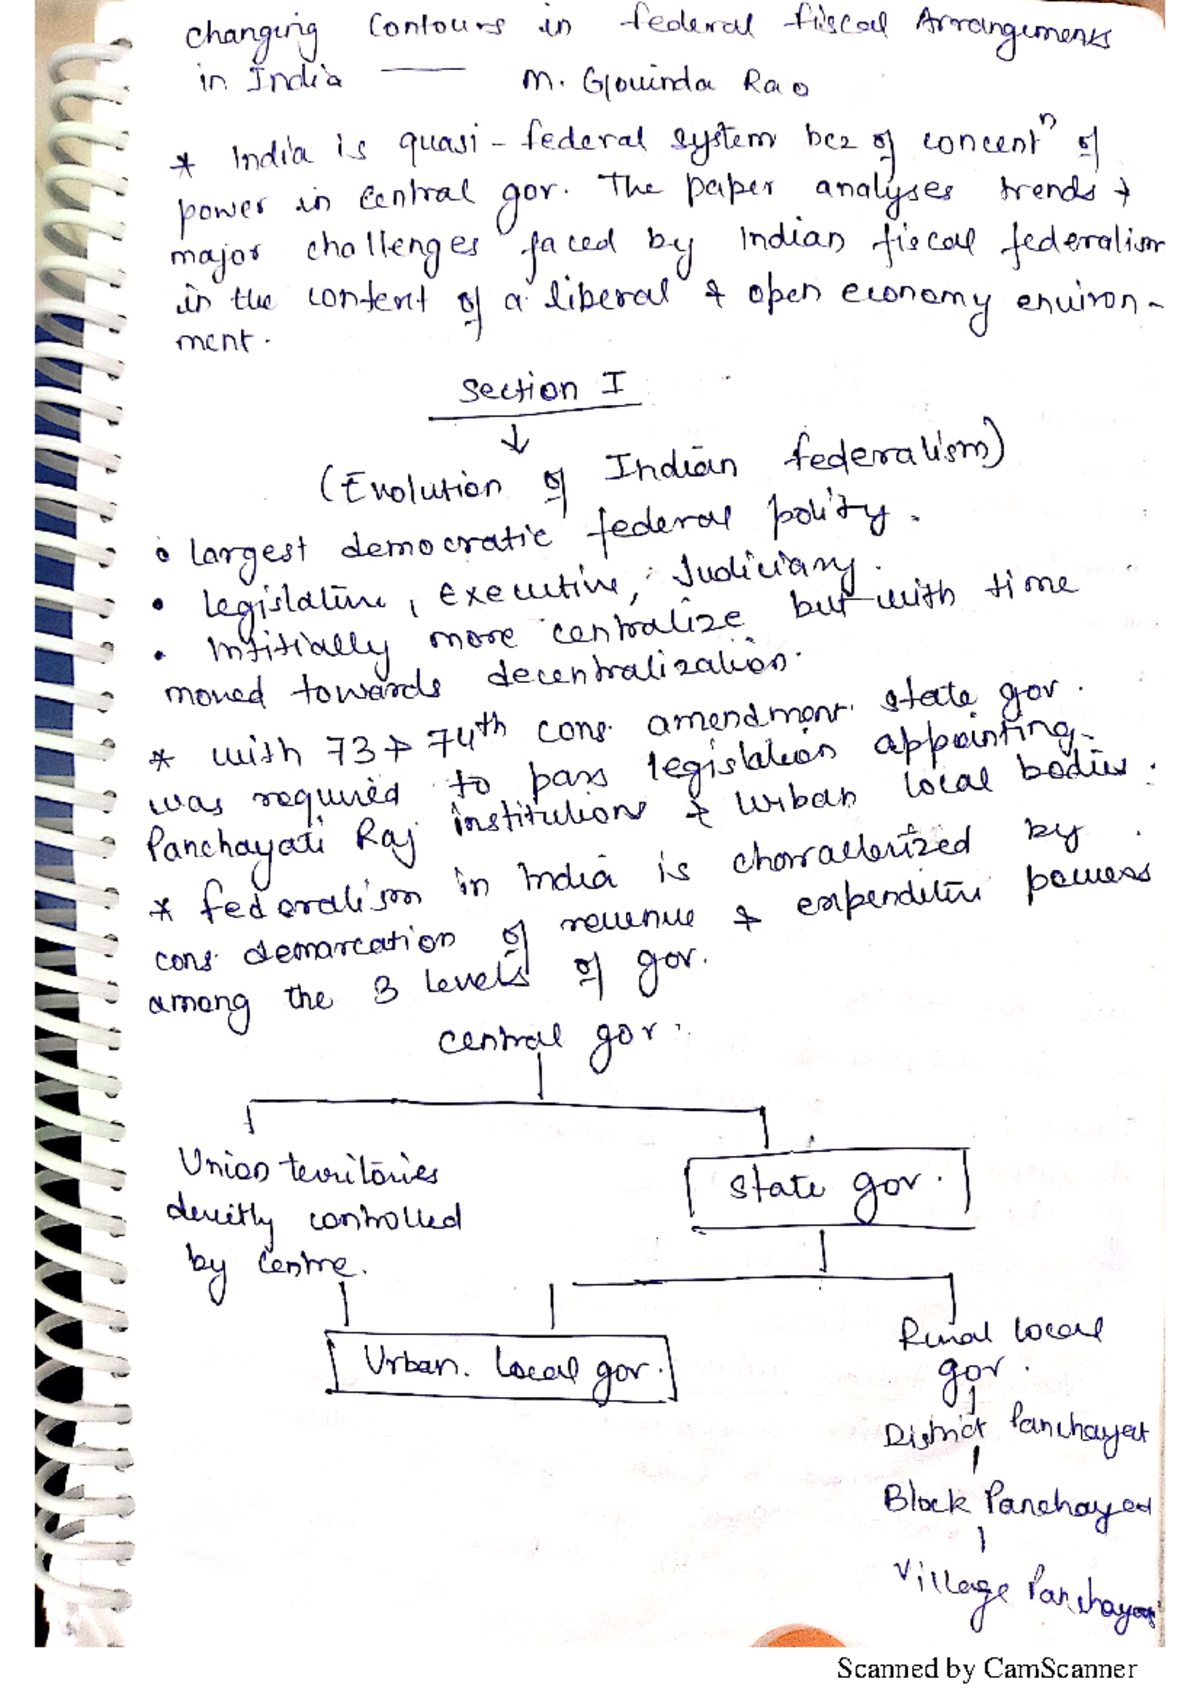 changing Contours in federal fiscal Arrangements
in India —— M. Govinda Rao
* India is quasi-federal system bcz of concentⁿ of
power in Central gov. The paper analyses trends &
major challenges faced by Indian fiscal federalism
in the content of a liberal & open economy environ-
ment.
Section I
↓
(Evolution of Indian federalism)
• largest democratic federal polity.
• legislature, executive, Judiciary.
• Initially more centralize but with time
moved towards decentralization.
* with 73 & 74th cons. amendment state gov.
was required to pass legislation appointing
Panchayati Raj institutions & urban local bodies.
* federalism in India is characterized by
cons. demarcation of revenue & expenditure powers
among the 3 levels of gov.
central gov.
Union territories
directly controlled
by Centre.
State gov.
Urban. Local gov.
Rural local
gov.
District Panchayat
Block Panchayat
Village Panchayat
Scanned by CamScanner